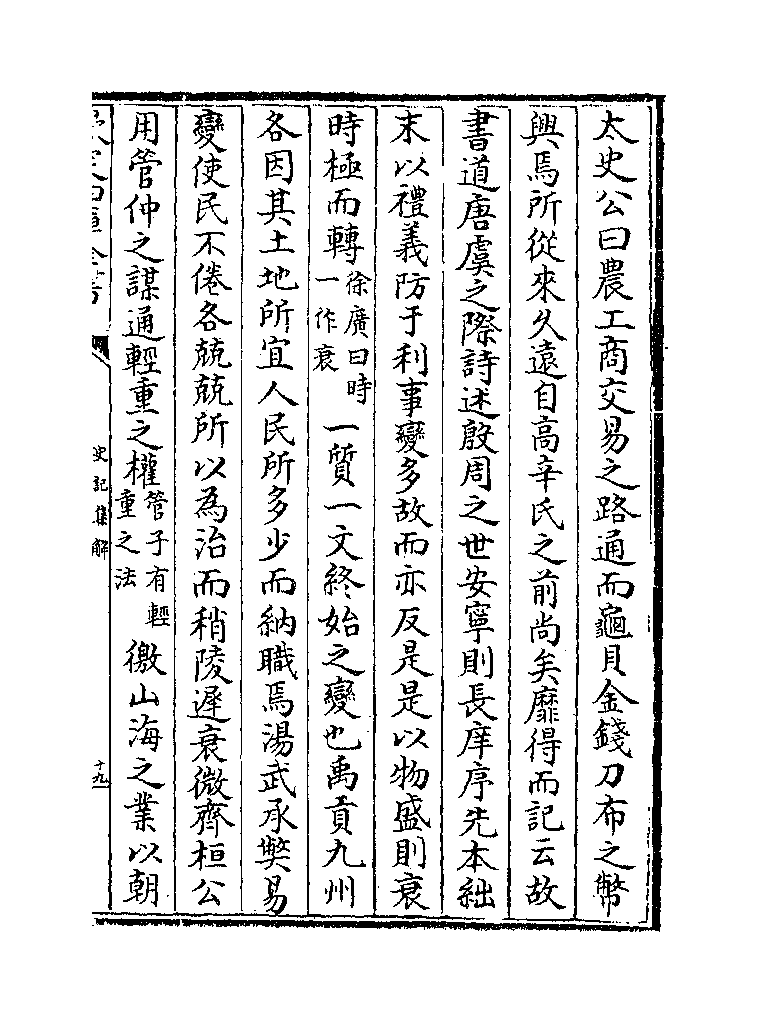 太史公曰農工商交易之路通而龜貝金錢刀布之幣
興焉所從來久遠自高辛氏之前尚矣靡得而記云故
書道唐虞之際詩述殷周之世安寧則長庠序先本絀
末以禮義防于利事變多故而亦反是是以物盛則衰
時極而轉徐廣曰時一作衰一質一文終始之變也禹貢九州
各因其土地所宜人民所多少而納職焉湯武承獘易
變使民不倦各兢兢所以為治而稍陵遲衰微齊桓公
用管仲之謀通輕重之權管子有輕重之法徼山海之業以朝
欽定四庫全書
史記集解
十九